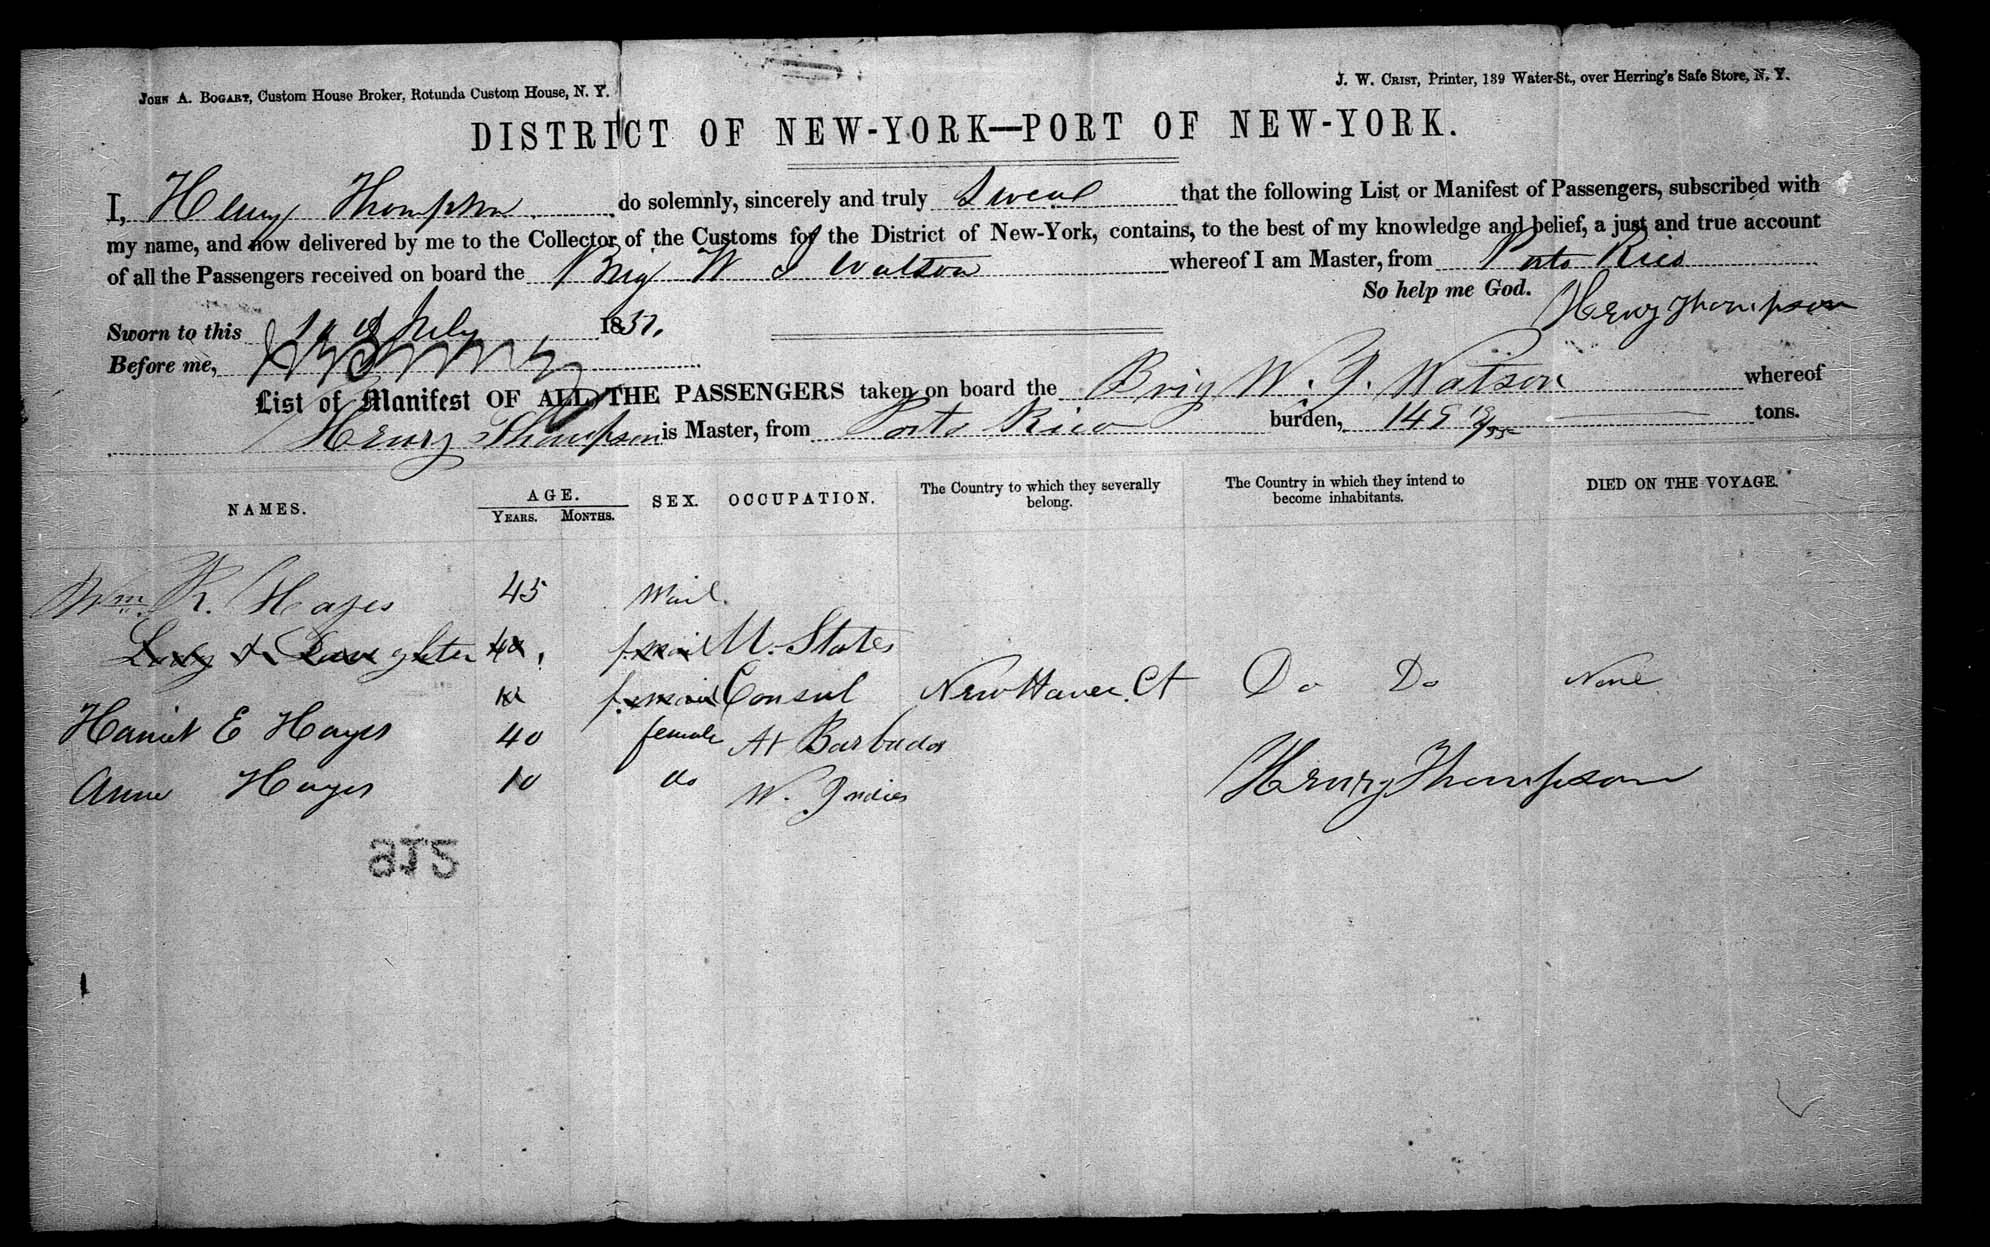 JOHN A. BOGART, Custom House Broker, Rotunda Custom House, N. Y.
J. W. CRIST, Printer, 139 Water-St., over Herring's Safe Store, N. Y.
DISTRICT OF NEW-YORK—PORT OF NEW-YORK.
I, Henry Thompson do solemnly, sincerely and truly Swear that the following List or Manifest of Passengers, subscribed with
my name, and now delivered by me to the Collector of the Customs for the District of New-York, contains, to the best of my knowledge and belief, a just and true account
of all the Passengers received on board the Brig W I Watson whereof I am Master, from Porto Rico
So help me God. Henry Thompson
Sworn to this July 1851.
Before me,
List of Manifest OF ALL THE PASSENGERS taken on board the Brig W. I. Watson whereof
Henry Thompson is Master, from Porto Rico burden, tons.
NAMES. AGE. SEX. OCCUPATION. The Country to which they severally belong. The Country in which they intend to become inhabitants. DIED ON THE VOYAGE.
YEARS. MONTHS.
Wm. R. Hayes 45 Mail.
Lady & Daughter 40 U. States
Consul New Haven Ct Do Do None
Harriet E Hayes 40 female At Barbados
Anne Hayes 10 do W. Indies
Henry Thompson